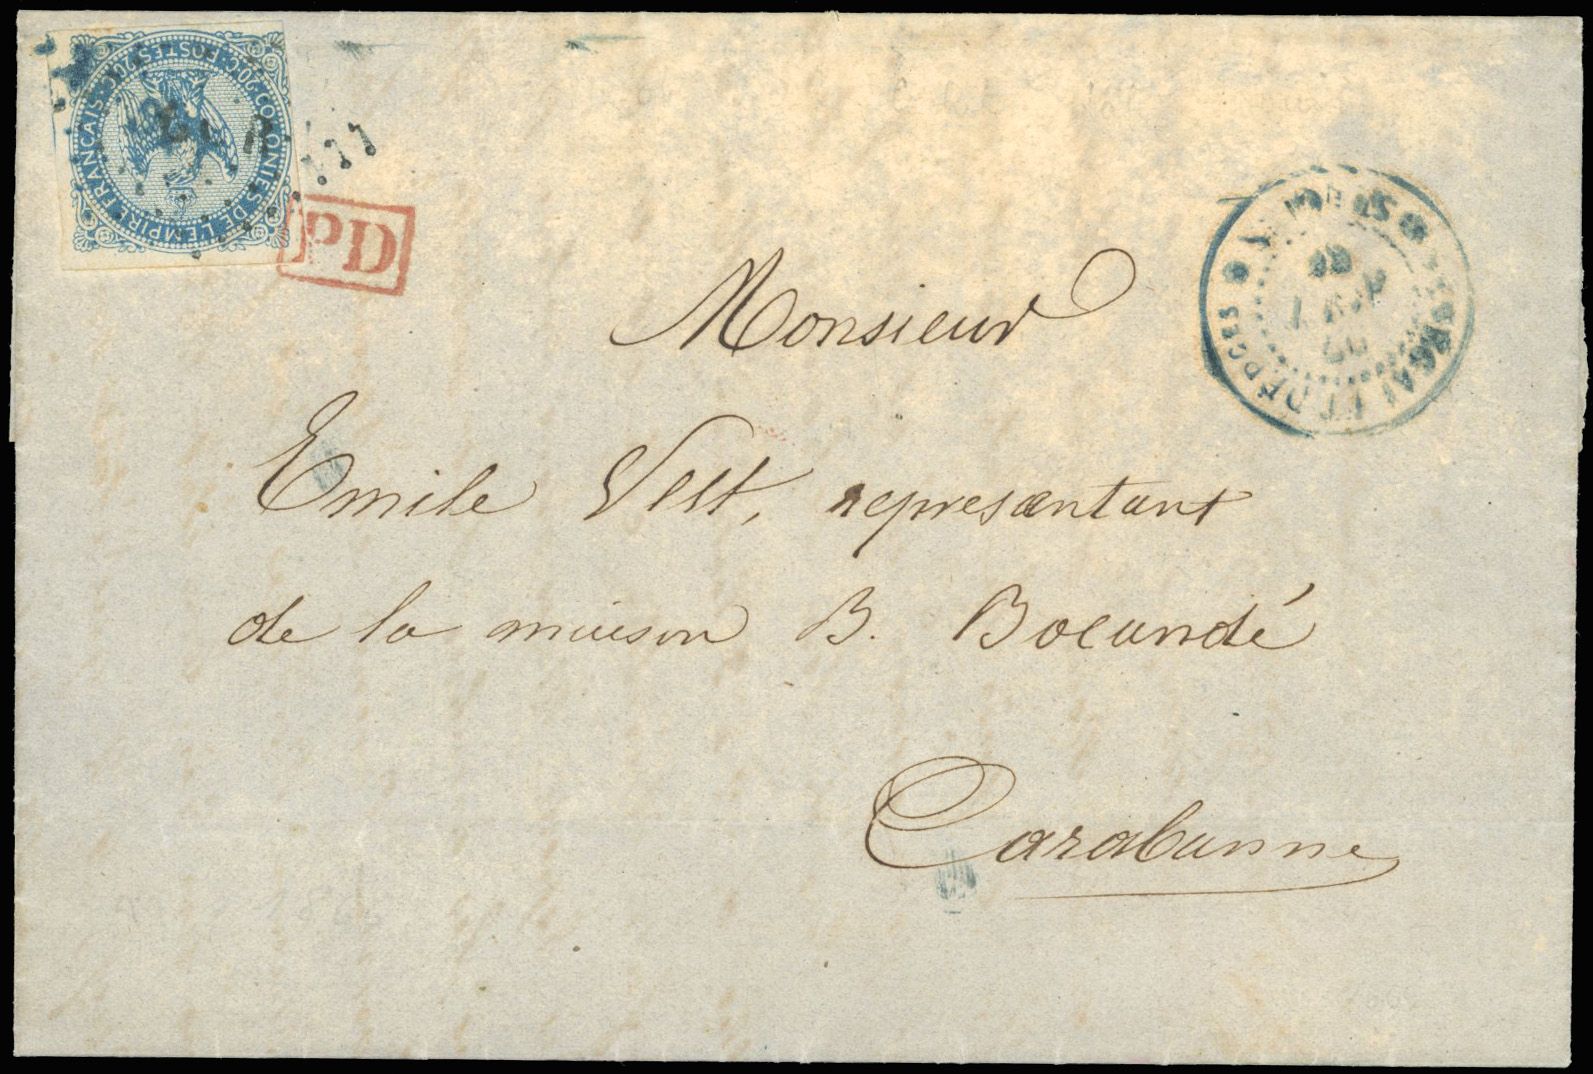 COLONIES DE L'EMPIRE FRANÇAIS 20C. POSTES 20C.
PD
SÉNÉGAL ET DÉPCES
Monsieur
Emile Vest, represæntant
de la maison B. Bocandé
Carabanne